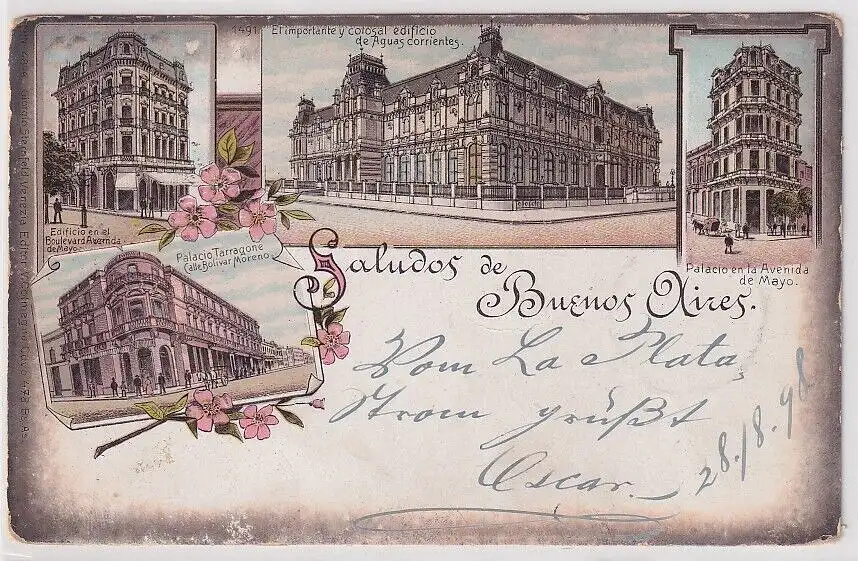 1491
El importante y colosal edificio
de Aguas corrientes.
Edificio en el
Boulevard Avenida
de Mayo.
Palacio Tarragone
Calle Bolivar Moreno.
Palacio en la Avenida
de Mayo.
Saludos de
Buenos Aires.
Vom La Plata
Strom grüßt
Oscar.
28./8.98